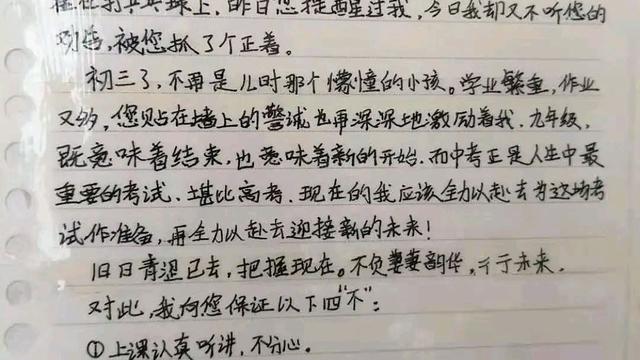 在打乒乓球上,昨日您提醒过我,今日我却又不听您的
劝告,被您抓了个正着。
初三了,不再是儿时那个懵憧的小孩。学业繁重,作业
又多,您贴在墙上的警诫也再深深地激励着我.九年级,
既意味着结束,也意味着新的开始.而中考正是人生中最
重要的考试、堪比高考.现在的我应该全力以赴去为这场考
试作准备,再全力以赴去迎接新的未来!
旧日青涩已去,把握现在。不负萋萋韵华,于未来.
对此,我向您保证以下四"不":
①上课认真听讲,不分心。